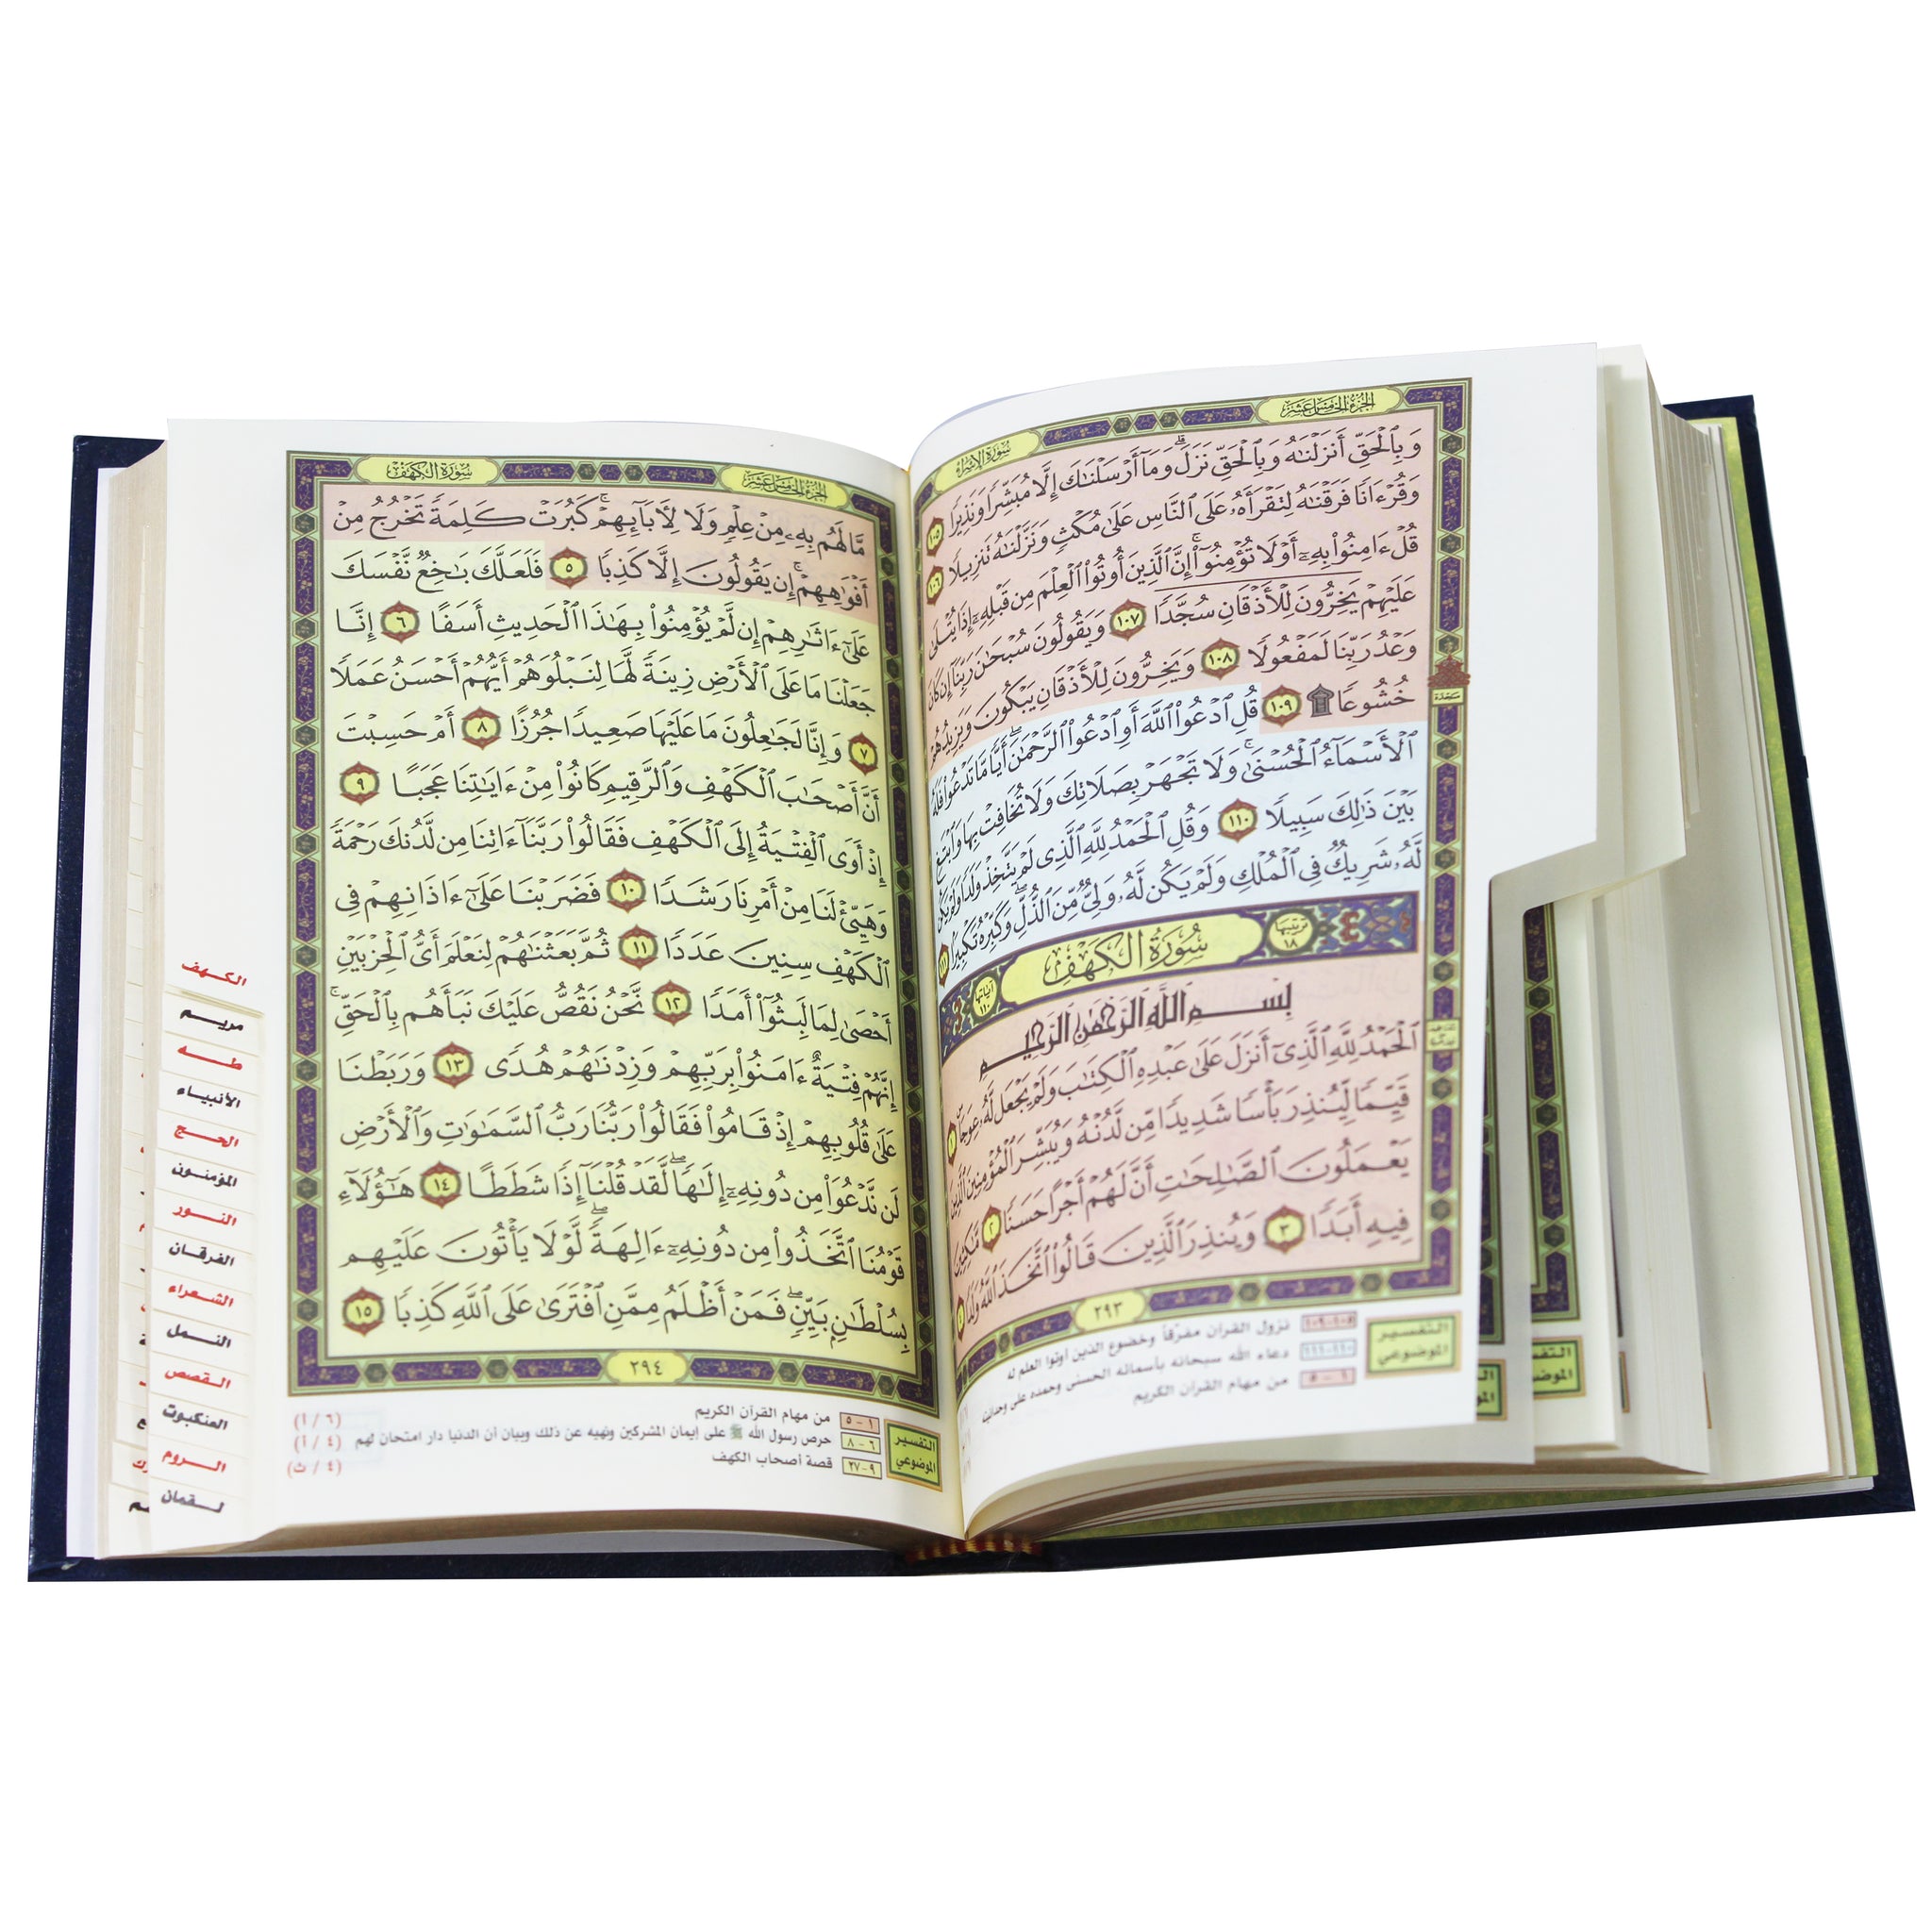 سُورَةُ الإِسْرَاء
الجُزْءُ الخَامِسَ عَشَرَ
وَبِٱلْحَقِّ أَنزَلْنَٰهُ وَبِٱلْحَقِّ نَزَلَ ۗ وَمَآ أَرْسَلْنَٰكَ إِلَّا مُبَشِّرًا وَنَذِيرًا ١٠٥
وَقُرْءَانًا فَرَقْنَٰهُ لِتَقْرَأَهُۥ عَلَى ٱلنَّاسِ عَلَىٰ مُكْثٍ وَنَزَّلْنَٰهُ تَنزِيلًا ١٠٦
قُلْ ءَامِنُوا۟ بِهِۦٓ أَوْ لَا تُؤْمِنُوٓا۟ ۚ إِنَّ ٱلَّذِينَ أُوتُوا۟ ٱلْعِلْمَ مِن قَبْلِهِۦٓ إِذَا يُتْلَىٰ
عَلَيْهِمْ يَخِرُّونَ لِلْأَذْقَانِ سُجَّدًا ١٠٧ وَيَقُولُونَ سُبْحَٰنَ رَبِّنَآ إِن كَانَ
وَعْدُ رَبِّنَا لَمَفْعُولًا ١٠٨ وَيَخِرُّونَ لِلْأَذْقَانِ يَبْكُونَ وَيَزِيدُهُمْ
خُشُوعًا ۩ ١٠٩ قُلِ ٱدْعُوا۟ ٱللَّهَ أَوِ ٱدْعُوا۟ ٱلرَّحْمَٰنَ ۖ أَيًّا مَّا تَدْعُوا۟ فَلَهُ
ٱلْأَسْمَآءُ ٱلْحُسْنَىٰ ۚ وَلَا تَجْهَرْ بِصَلَاتِكَ وَلَا تُخَافِتْ بِهَا وَٱبْتَغِ
بَيْنَ ذَٰلِكَ سَبِيلًا ١١٠ وَقُلِ ٱلْحَمْدُ لِلَّهِ ٱلَّذِى لَمْ يَتَّخِذْ وَلَدًا وَلَمْ يَكُن
لَّهُۥ شَرِيكٌ فِى ٱلْمُلْكِ وَلَمْ يَكُن لَّهُۥ وَلِىٌّ مِّنَ ٱلذُّلِّ ۖ وَكَبِّرْهُ تَكْبِيرًۢا ١١١
ترتيبها ١٨ سُورَةُ الكَهْفِ آياتها ١١٠
بِسْمِ ٱللَّهِ ٱلرَّحْمَٰنِ ٱلرَّحِيمِ
ٱلْحَمْدُ لِلَّهِ ٱلَّذِىٓ أَنزَلَ عَلَىٰ عَبْدِهِ ٱلْكِتَٰبَ وَلَمْ يَجْعَل لَّهُۥ عِوَجَاۜ ١
قَيِّمًا لِّيُنذِرَ بَأْسًا شَدِيدًا مِّن لَّدُنْهُ وَيُبَشِّرَ ٱلْمُؤْمِنِينَ ٱلَّذِينَ
يَعْمَلُونَ ٱلصَّٰلِحَٰتِ أَنَّ لَهُمْ أَجْرًا حَسَنًا ٢ مَّٰكِثِينَ
فِيهِ أَبَدًا ٣ وَيُنذِرَ ٱلَّذِينَ قَالُوا۟ ٱتَّخَذَ ٱللَّهُ وَلَدًا ٤
سجدة
٢٩٣
التفسير الموضوعي
١٠٥-١٠٩ نزول القرآن مفرّقاً وخضوع الذين أوتوا العلم له
١١٠-١١١ دعاء الله سبحانه بأسمائه الحسنى وحمده على وحدانيته
١-٥ من مهام القرآن الكريم
سُورَةُ الكَهْفِ
الجُزْءُ الخَامِسَ عَشَرَ
مَّا لَهُم بِهِۦ مِنْ عِلْمٍ وَلَا لِـَٔابَآئِهِمْ ۚ كَبُرَتْ كَلِمَةً تَخْرُجُ مِنْ
أَفْوَٰهِهِمْ ۚ إِن يَقُولُونَ إِلَّا كَذِبًا ٥ فَلَعَلَّكَ بَٰخِعٌ نَّفْسَكَ
عَلَىٰٓ ءَاثَٰرِهِمْ إِن لَّمْ يُؤْمِنُوا۟ بِهَٰذَا ٱلْحَدِيثِ أَسَفًا ٦ إِنَّا
جَعَلْنَا مَا عَلَى ٱلْأَرْضِ زِينَةً لَّهَا لِنَبْلُوَهُمْ أَيُّهُمْ أَحْسَنُ عَمَلًا
٧ وَإِنَّا لَجَٰعِلُونَ مَا عَلَيْهَا صَعِيدًا جُرُزًا ٨ أَمْ حَسِبْتَ
أَنَّ أَصْحَٰبَ ٱلْكَهْفِ وَٱلرَّقِيمِ كَانُوا۟ مِنْ ءَايَٰتِنَا عَجَبًا ٩
إِذْ أَوَى ٱلْفِتْيَةُ إِلَى ٱلْكَهْفِ فَقَالُوا۟ رَبَّنَآ ءَاتِنَا مِن لَّدُنكَ رَحْمَةً
وَهَيِّئْ لَنَا مِنْ أَمْرِنَا رَشَدًا ١٠ فَضَرَبْنَا عَلَىٰٓ ءَاذَانِهِمْ فِى
ٱلْكَهْفِ سِنِينَ عَدَدًا ١١ ثُمَّ بَعَثْنَٰهُمْ لِنَعْلَمَ أَىُّ ٱلْحِزْبَيْنِ
أَحْصَىٰ لِمَا لَبِثُوٓا۟ أَمَدًا ١٢ نَّحْنُ نَقُصُّ عَلَيْكَ نَبَأَهُم بِٱلْحَقِّ ۚ
إِنَّهُمْ فِتْيَةٌ ءَامَنُوا۟ بِرَبِّهِمْ وَزِدْنَٰهُمْ هُدًى ١٣ وَرَبَطْنَا
عَلَىٰ قُلُوبِهِمْ إِذْ قَامُوا۟ فَقَالُوا۟ رَبُّنَا رَبُّ ٱلسَّمَٰوَٰتِ وَٱلْأَرْضِ
لَن نَّدْعُوَا۟ مِن دُونِهِۦٓ إِلَٰهًا ۖ لَّقَدْ قُلْنَآ إِذًا شَطَطًا ١٤ هَٰٓؤُلَآءِ
قَوْمُنَا ٱتَّخَذُوا۟ مِن دُونِهِۦٓ ءَالِهَةً ۖ لَّوْلَا يَأْتُونَ عَلَيْهِم
بِسُلْطَٰنٍۭ بَيِّنٍ ۖ فَمَنْ أَظْلَمُ مِمَّنِ ٱفْتَرَىٰ عَلَى ٱللَّهِ كَذِبًا ١٥
٢٩٤
التفسير الموضوعي
١-٥ من مهام القرآن الكريم (٦ / أ)
٦-٨ حرص رسول الله ﷺ على إيمان المشركين ونهيه عن ذلك وبيان أن الدنيا دار امتحان لهم (٤ / أ)
٩-٢٧ قصة أصحاب الكهف (٤ / ث)
الكهف
مريم
طه
الأنبياء
الحج
المؤمنون
النور
الفرقان
الشعراء
النمل
القصص
العنكبوت
الروم
لقمان